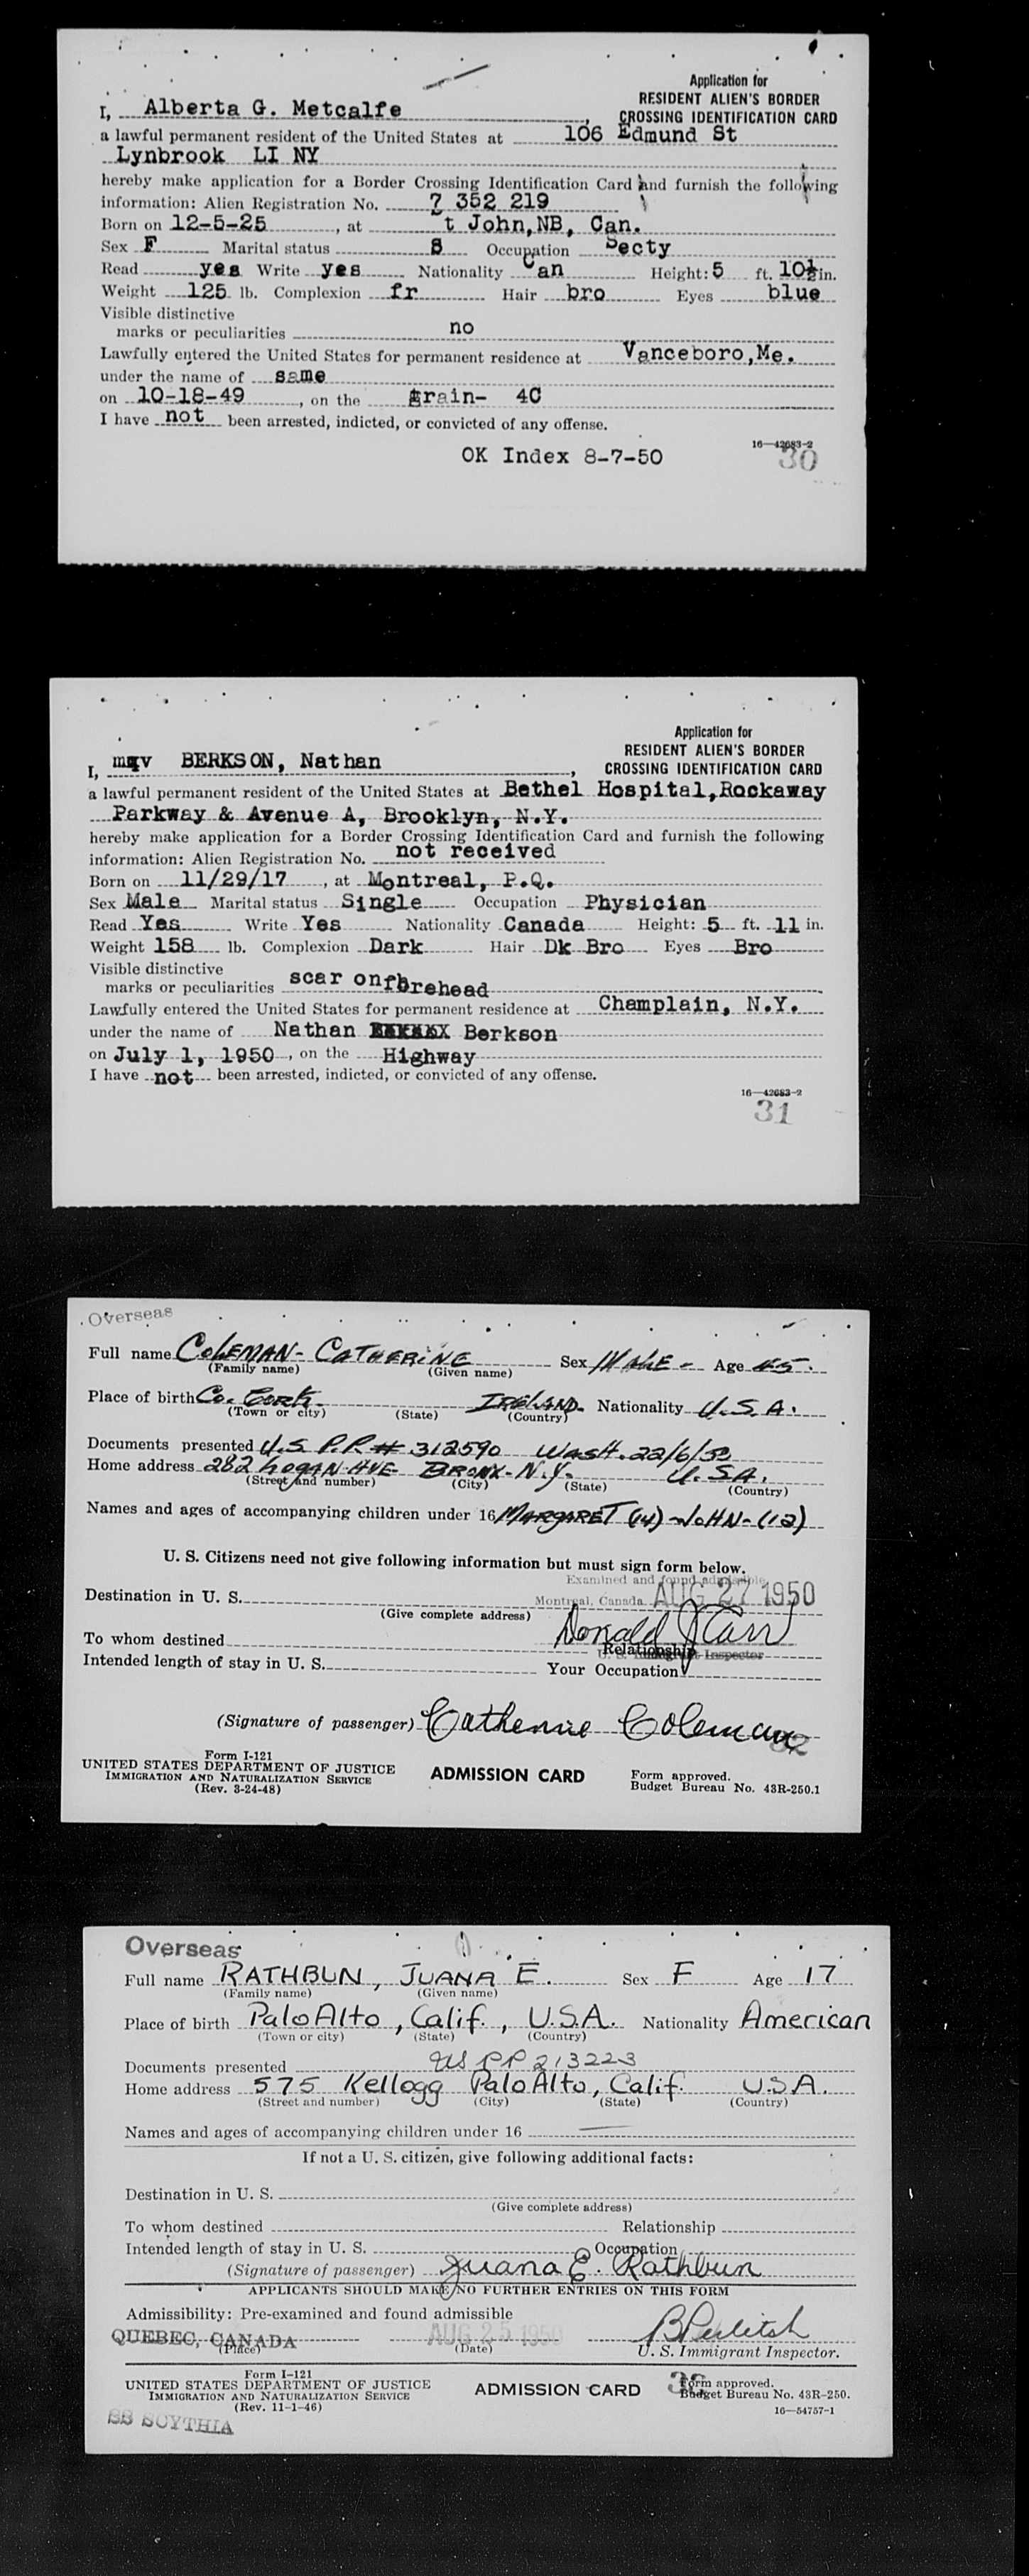 Application for
RESIDENT ALIEN'S BORDER
CROSSING IDENTIFICATION CARD
I, Alberta G. Metcalfe,
a lawful permanent resident of the United States at 106 Edmund St
Lynbrook LI NY
hereby make application for a Border Crossing Identification Card and furnish the following
information: Alien Registration No. 7 352 219
Born on 12-5-25, at t John, NB, Can.
Sex F Marital status S Occupation Secty
Read yes Write yes Nationality Can Height: 5 ft. 10½ in.
Weight 125 lb. Complexion fr Hair bro Eyes blue
Visible distinctive
marks or peculiarities no
Lawfully entered the United States for permanent residence at Vanceboro, Me.
under the name of same
on 10-18-49, on the train- 4C
I have not been arrested, indicted, or convicted of any offense.
16—42683-2
OK Index 8-7-50
30
Application for
RESIDENT ALIEN'S BORDER
CROSSING IDENTIFICATION CARD
I, BERKSON, Nathan,
a lawful permanent resident of the United States at Bethel Hospital, Rockaway
Parkway & Avenue A, Brooklyn, N.Y.
hereby make application for a Border Crossing Identification Card and furnish the following
information: Alien Registration No. not received
Born on 11/29/17, at Montreal, P.Q.
Sex Male Marital status Single Occupation Physician
Read Yes Write Yes Nationality Canada Height: 5 ft. 11 in.
Weight 158 lb. Complexion Dark Hair Dk Bro Eyes Bro
Visible distinctive
marks or peculiarities scar on forehead
Lawfully entered the United States for permanent residence at Champlain, N.Y.
under the name of Nathan Berkson
on July 1, 1950, on the Highway
I have not been arrested, indicted, or convicted of any offense.
16—42683-2
31
Overseas
Full name COLEMAN - CATHERINE Sex MALE - Age 45.
(Family name) (Given name)
Place of birth Co. Cork. IRELAND. Nationality U.S.A.
(Town or city) (State) (Country)
Documents presented U.S P.P. # 312590 WASH. 22/6/50
Home address 282 LOGAN AVE BRONX - N.Y. U.SA.
(Street and number) (City) (State) (Country)
Names and ages of accompanying children under 16 MARGARET (14) - JOHN - (12)
U. S. Citizens need not give following information but must sign form below.
Examined and found admissible
Destination in U. S. Montreal, Canada AUG 27 1950
(Give complete address)
Donald J Carr
To whom destined Relationship
U. S. Immigrant Inspector
Intended length of stay in U. S. Your Occupation
(Signature of passenger) Catherine Coleman
32
Form I-121
UNITED STATES DEPARTMENT OF JUSTICE
IMMIGRATION AND NATURALIZATION SERVICE
(Rev. 3-24-48)
ADMISSION CARD
Form approved.
Budget Bureau No. 43R-250.1
Overseas
Full name RATHBUN, JUANA E. Sex F Age 17
(Family name) (Given name)
Place of birth Palo Alto, Calif., U.S.A. Nationality American
(Town or city) (State) (Country)
Documents presented US PP 213223
Home address 575 Kellogg Palo Alto, Calif. U.S.A.
(Street and number) (City) (State) (Country)
Names and ages of accompanying children under 16
If not a U. S. citizen, give following additional facts:
Destination in U. S.
(Give complete address)
To whom destined Relationship
Intended length of stay in U. S. Occupation
(Signature of passenger) Juana E. Rathbun
APPLICANTS SHOULD MAKE NO FURTHER ENTRIES ON THIS FORM
Admissibility: Pre-examined and found admissible
QUEBEC, CANADA AUG 25 1950
(Place) (Date) U. S. Immigrant Inspector.
Form I-121
UNITED STATES DEPARTMENT OF JUSTICE
IMMIGRATION AND NATURALIZATION SERVICE
(Rev. 11-1-46)
ADMISSION CARD
Form approved.
Budget Bureau No. 43R-250.
16—54757-1
SS SCYTHIA